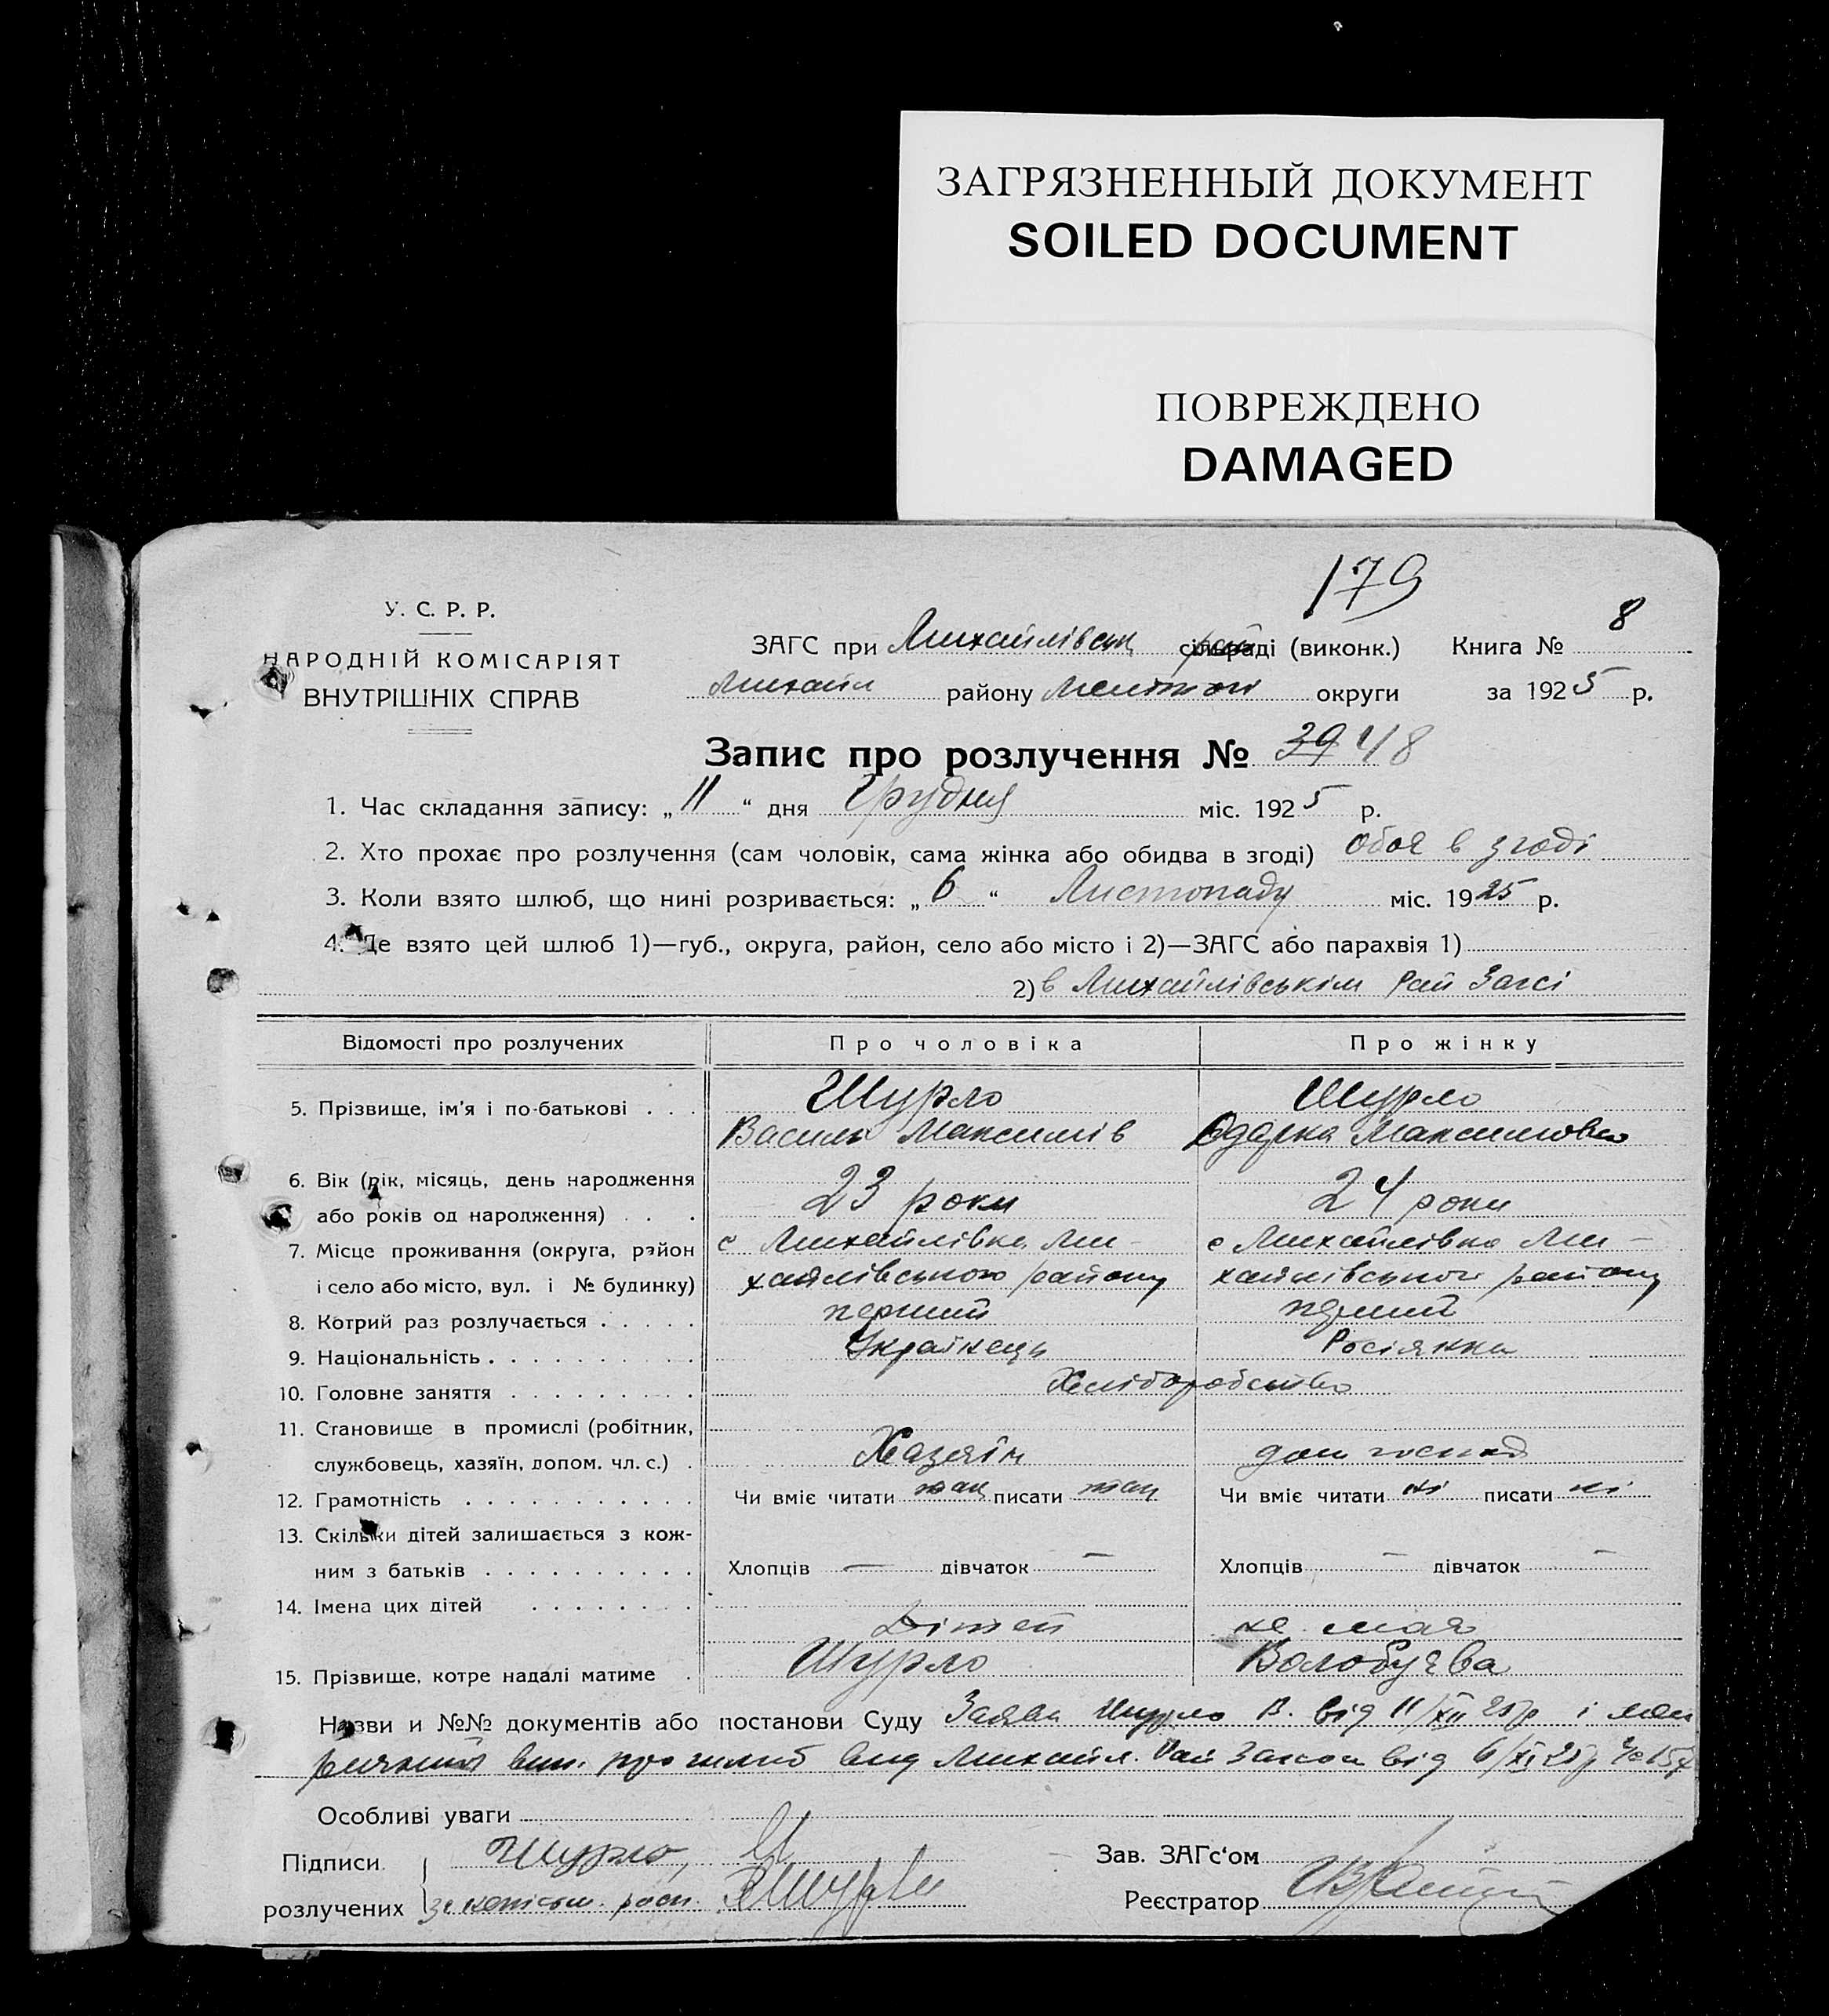 ЗАГРЯЗНЕННЫЙ ДОКУМЕНТ
SOILED DOCUMENT
ПОВРЕЖДЕНО
DAMAGED
179
У. С. Р. Р.
НАРОДНІЙ КОМІСАРІЯТ
ВНУТРІШНІХ СПРАВ
ЗАГС при Михайлівськ сільраді (виконк.) Книга № 8
Михайл району Меліт округи за 1925 р.
Запис про розлучення № 39 48
1. Час складання запису: „ 11 “ дня Грудня міс. 1925 р.
2. Хто прохає про розлучення (сам чоловік, сама жінка або обидва в згоді) Обоє в згоді
3. Коли взято шлюб, що нині розривається: „ 6 “ Листопаду міс. 1925 р.
4. Де взято цей шлюб 1)—губ., округа, район, село або місто і 2)—ЗАГС або парахвія 1)
2) в Михайлівськім Рай Загсі
Відомості про розлучених Про чоловіка Про жінку
5. Прізвище, ім'я і по-батькові . . . Шурло Шурло
Василь Максимів Одарка Максимовна
6. Вік (рік, місяць, день народження
або років од народження) . . . 23 роки 24 роки
7. Місце проживання (округа, район с Михайлівка Ми- с Михайлівка Ми-
і село або місто, вул. і № будинку) хайлівського району хайлівського району
8. Котрий раз розлучається . . . . . перший перший
9. Національність . . . . . . . . . . Українець Росіянка
10. Головне заняття . . . . . . . . . Хліборобство
11. Становище в промислі (робітник,
службовець, хазяїн, допом. чл. с.) . Хазяїн дом господ
12. Грамотність . . . . . . . . . . . Чи вміє читати так писати так Чи вміє читати ні писати ні
13. Скільки дітей залишається з кож-
ним з батьків . . . . . . . . . . Хлопців — дівчаток — Хлопців — дівчаток —
14. Імена цих дітей . . . . . . . .
Дітей не має
15. Прізвище, котре надалі матиме . Шурло Волобуєва
Назви и №№ документів або постанови Суду Заява Шурло В. від 11/XII 25р і
вип. про шлюб вид Михайл. Рай Загсом від 6/XI 25р № 157
Особливі уваги
Підписи Шурло, Зав. ЗАГс'ом
розлучених за неписьм. росп. Реєстратор